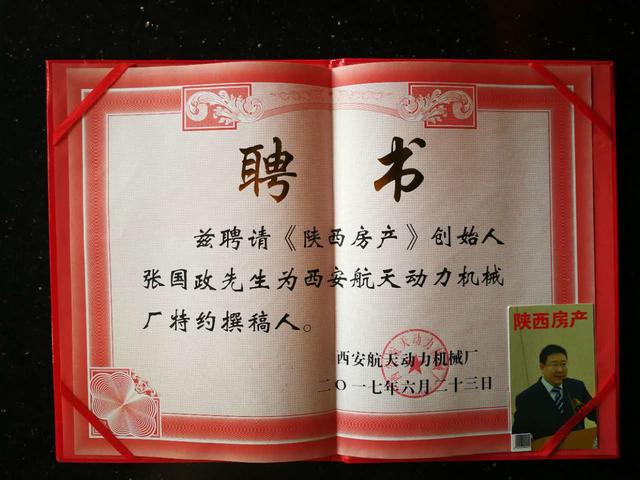 聘书
兹聘请《陕西房产》创始人
张国政先生为西安航天动力机械
厂特约撰稿人。
西安航天动力机械厂
二〇一七年六月二十三日
陕西房产